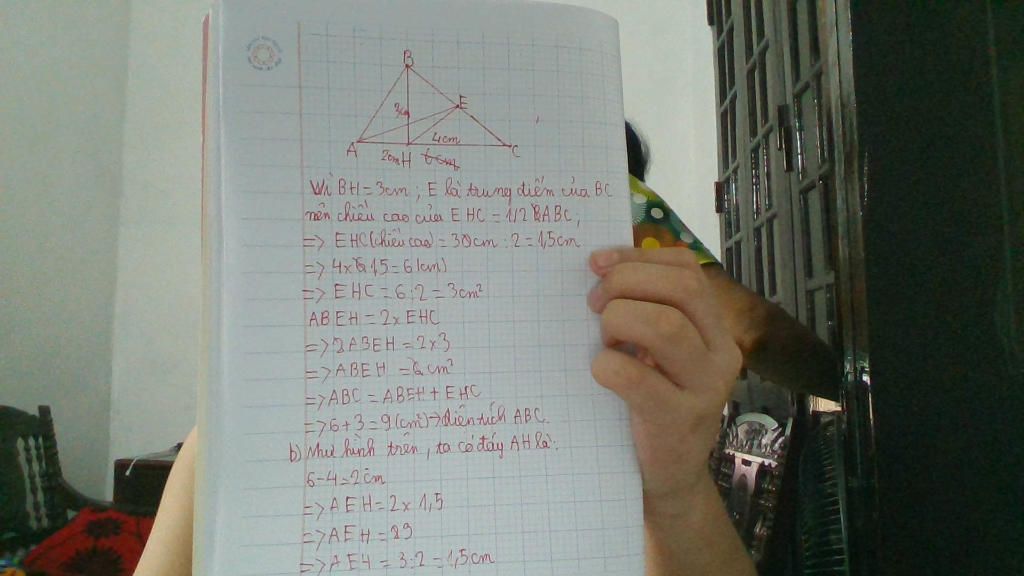 B
3cm
E
4cm
A
2cm H 6cm
C
Vì BH = 3cm ; E là trung điểm của BC
nên chiều cao của EHC = 1/2 BABC,
=> EHC (chiều cao) = 30cm : 2 = 1,5cm
=> 4 x 1,5 = 6 (cm)
=> EHC = 6 : 2 = 3cm²
ABEH = 2 x EHC
=> ABEH = 2 x 3
=> ABEH = 6cm²
=> ABC = ABEH + EHC
=> 6 + 3 = 9 (cm²) => diện tích ABC.
b) Như hình trên, ta có đáy AH là:
6 - 4 = 2cm
=> AEH = 2 x 1,5
=> AEH =
=> AEH = 3 : 2 = 1,5cm